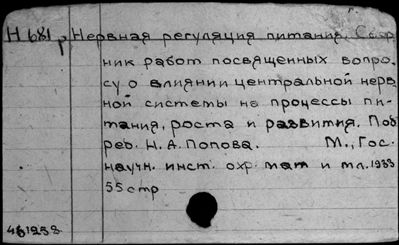 Н 681 р Нервная регуляция питания. Сбор
ник работ посвященных вопро
су о влиянии центральной нерв
ной системы на процессы пи-
тания, роста и развития. Под
ред. Н. А. Попова. М., Гос.
научн. инст. охр мат и мл. 1933
55 стр